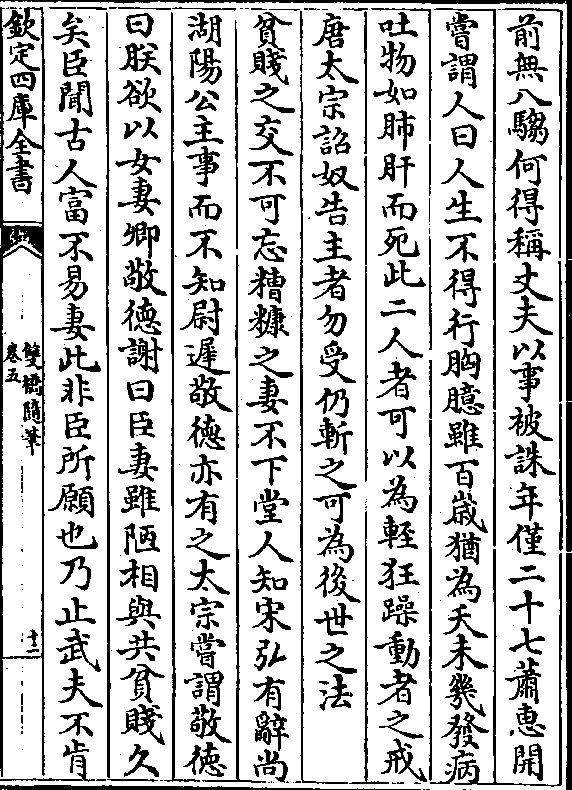 前無八騶何得稱丈夫以事被誅年僅二十七蕭惠開
嘗謂人曰人生不得行胸臆雖百歲猶為夭未幾發病
吐物如肺肝而死此二人者可以為輕狂躁動者之戒
唐太宗詔奴告主者勿受仍斬之可為後世之法
貧賤之交不可忘糟糠之妻不下堂人知宋弘有辭尚
湖陽公主事而不知尉遲敬德亦有之太宗嘗謂敬德
曰朕欲以女妻卿敬德謝曰臣妻雖陋相與共貧賤久
矣臣聞古人富不易妻此非臣所願也乃止武夫不肯
欽定四庫全書
雙橋隨筆
卷五
十二